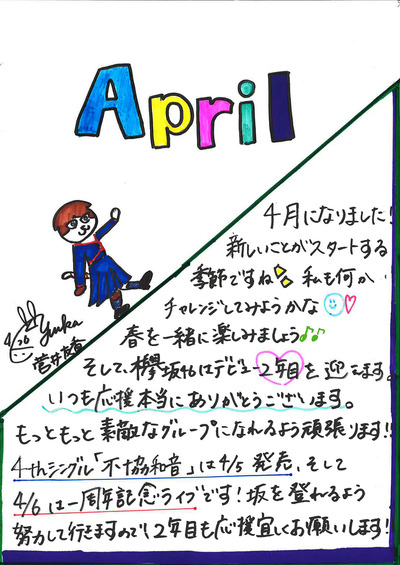 April
4月になりました!
新しいことがスタートする
季節ですね 私も何か
チャレンジしてみようかな
春を一緒に楽しみましょう♪♪
そして、欅坂46はデビュー2年目を迎えます。
いつも応援本当にありがとうございます。
もっともっと素敵なグループになれるよう頑張ります!!
4thシングル「不協和音」は4/5発売、そして
4/6は一周年記念ライブです!坂を登れるよう
努力して行きますので、2年目も応援宜しくお願いします!
Yuuka
菅井友香